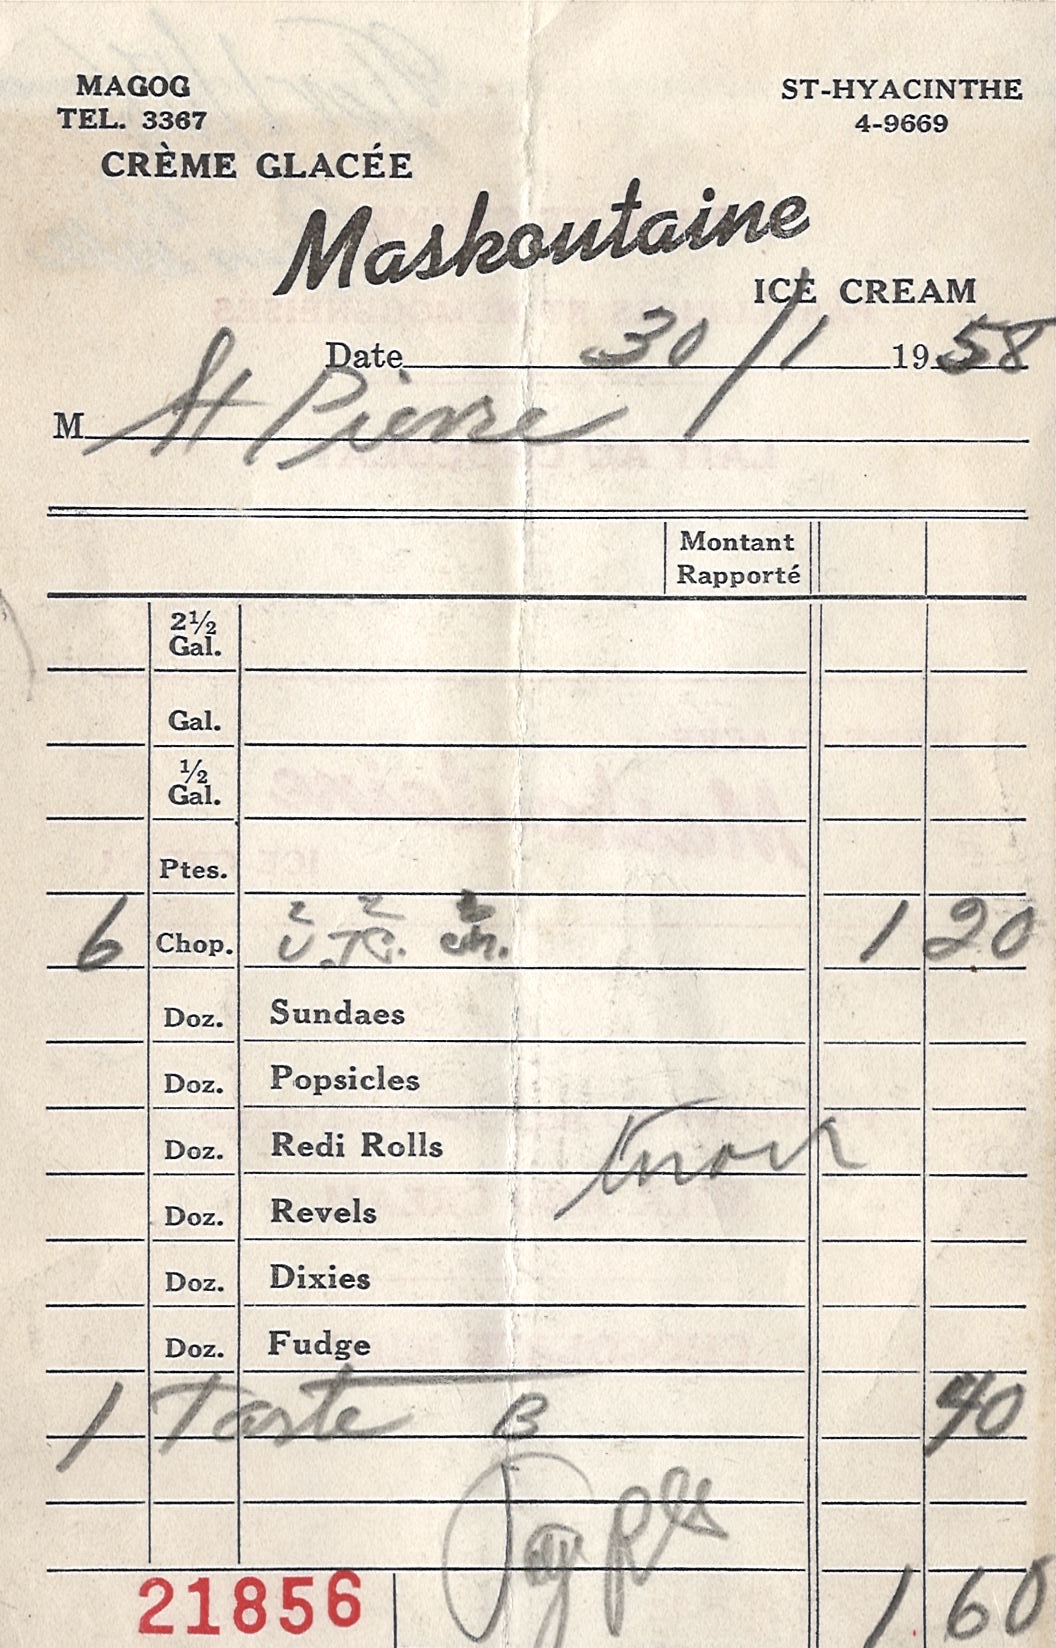 MAGOG
TEL. 3367
ST-HYACINTHE
4-9669
CRÈME GLACÉE
Maskoutaine
ICE CREAM
Date 30/1 1958
M St Pierre
Montant
Rapporté
2½
Gal.
Gal.
½
Gal.
Ptes.
6 Chop. 1 20
Doz. Sundaes
Doz. Popsicles
Doz. Redi Rolls
Doz. Revels
Doz. Dixies
Doz. Fudge
1 Tarte B 40
21856 1.60